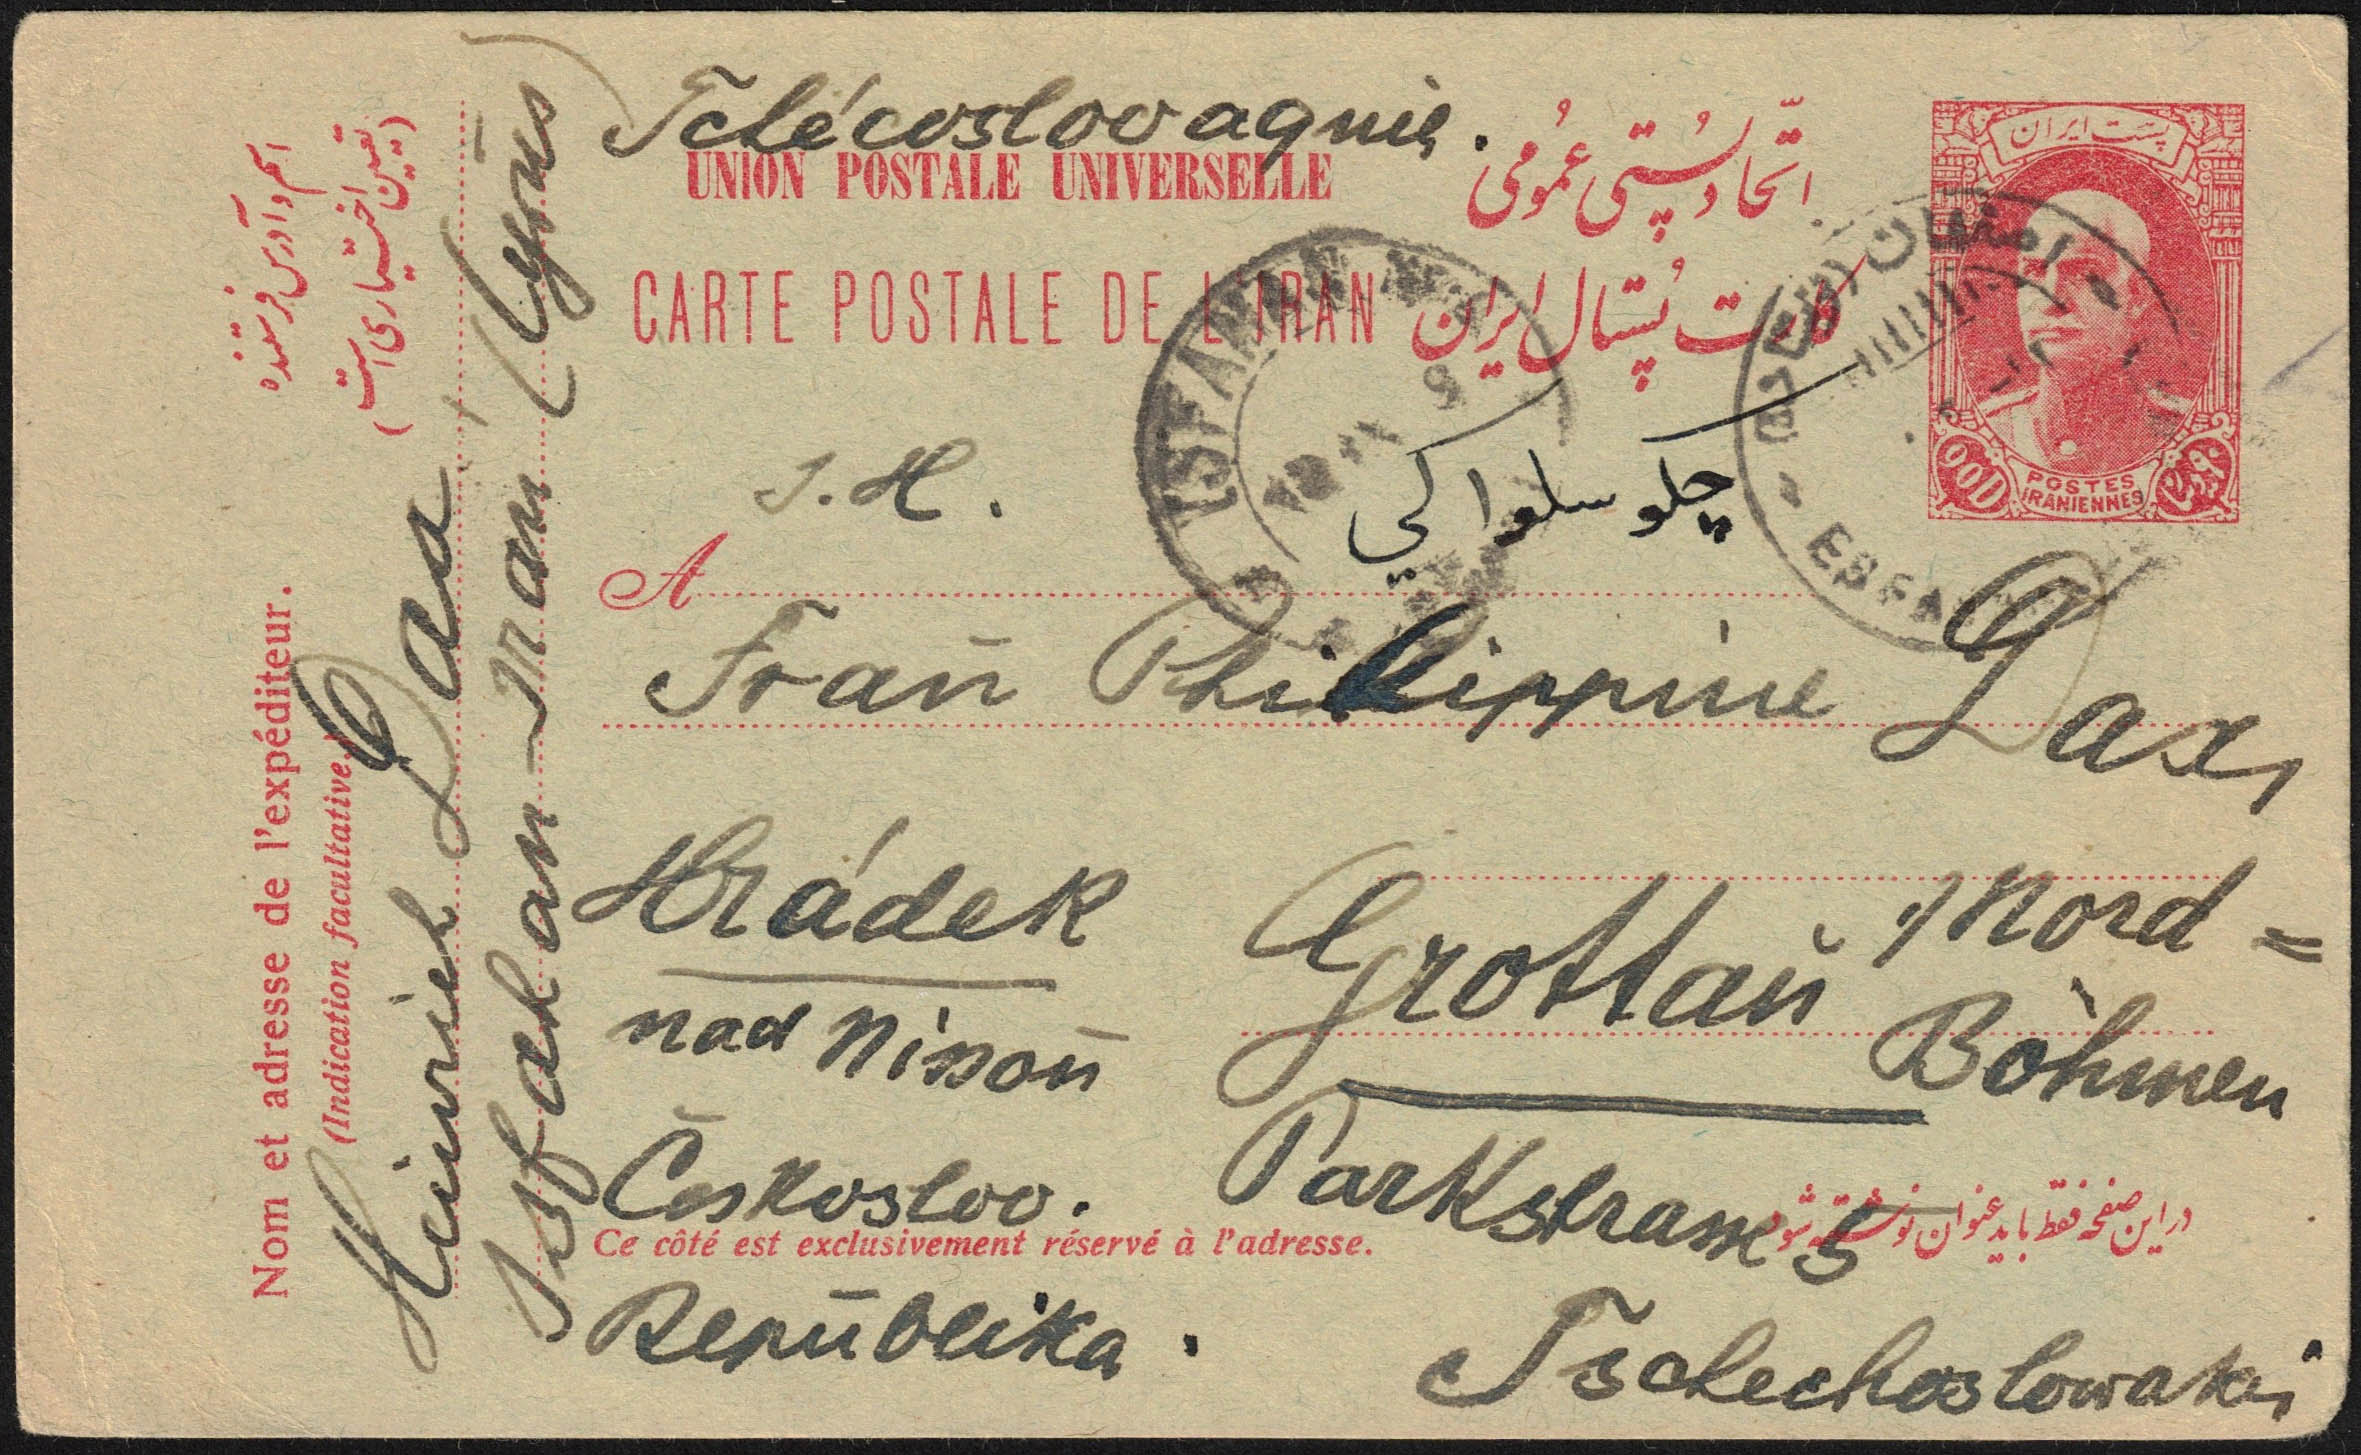 Tchécoslovaquie.
UNION POSTALE UNIVERSELLE
اتّحاد پُستی عمُومی
CARTE POSTALE DE L'IRAN
کارت پُستال ایران
پست ایران
POSTES
IRANIENNES
90D
ISFAHAN
ESFA
چکوسلواکي
I. H.
A
Fraū Philippine Dax,
Hrádek
nad Nisoū
Českoslov.
Repūblika.
Grottaū
/Nord=
Böhmen
Parkstrasse 5
Tschechoslowakei
Ce côté est exclusivement réservé à l'adresse.
در این صفحه فقط باید عنوان نوشته شود
Nom et adresse de l'expéditeur.
(Indication facultative.)
اسم و آدرس فرستنده
(تعیین اختیاری است)
Heinrich Dax
Isfahan-Iran